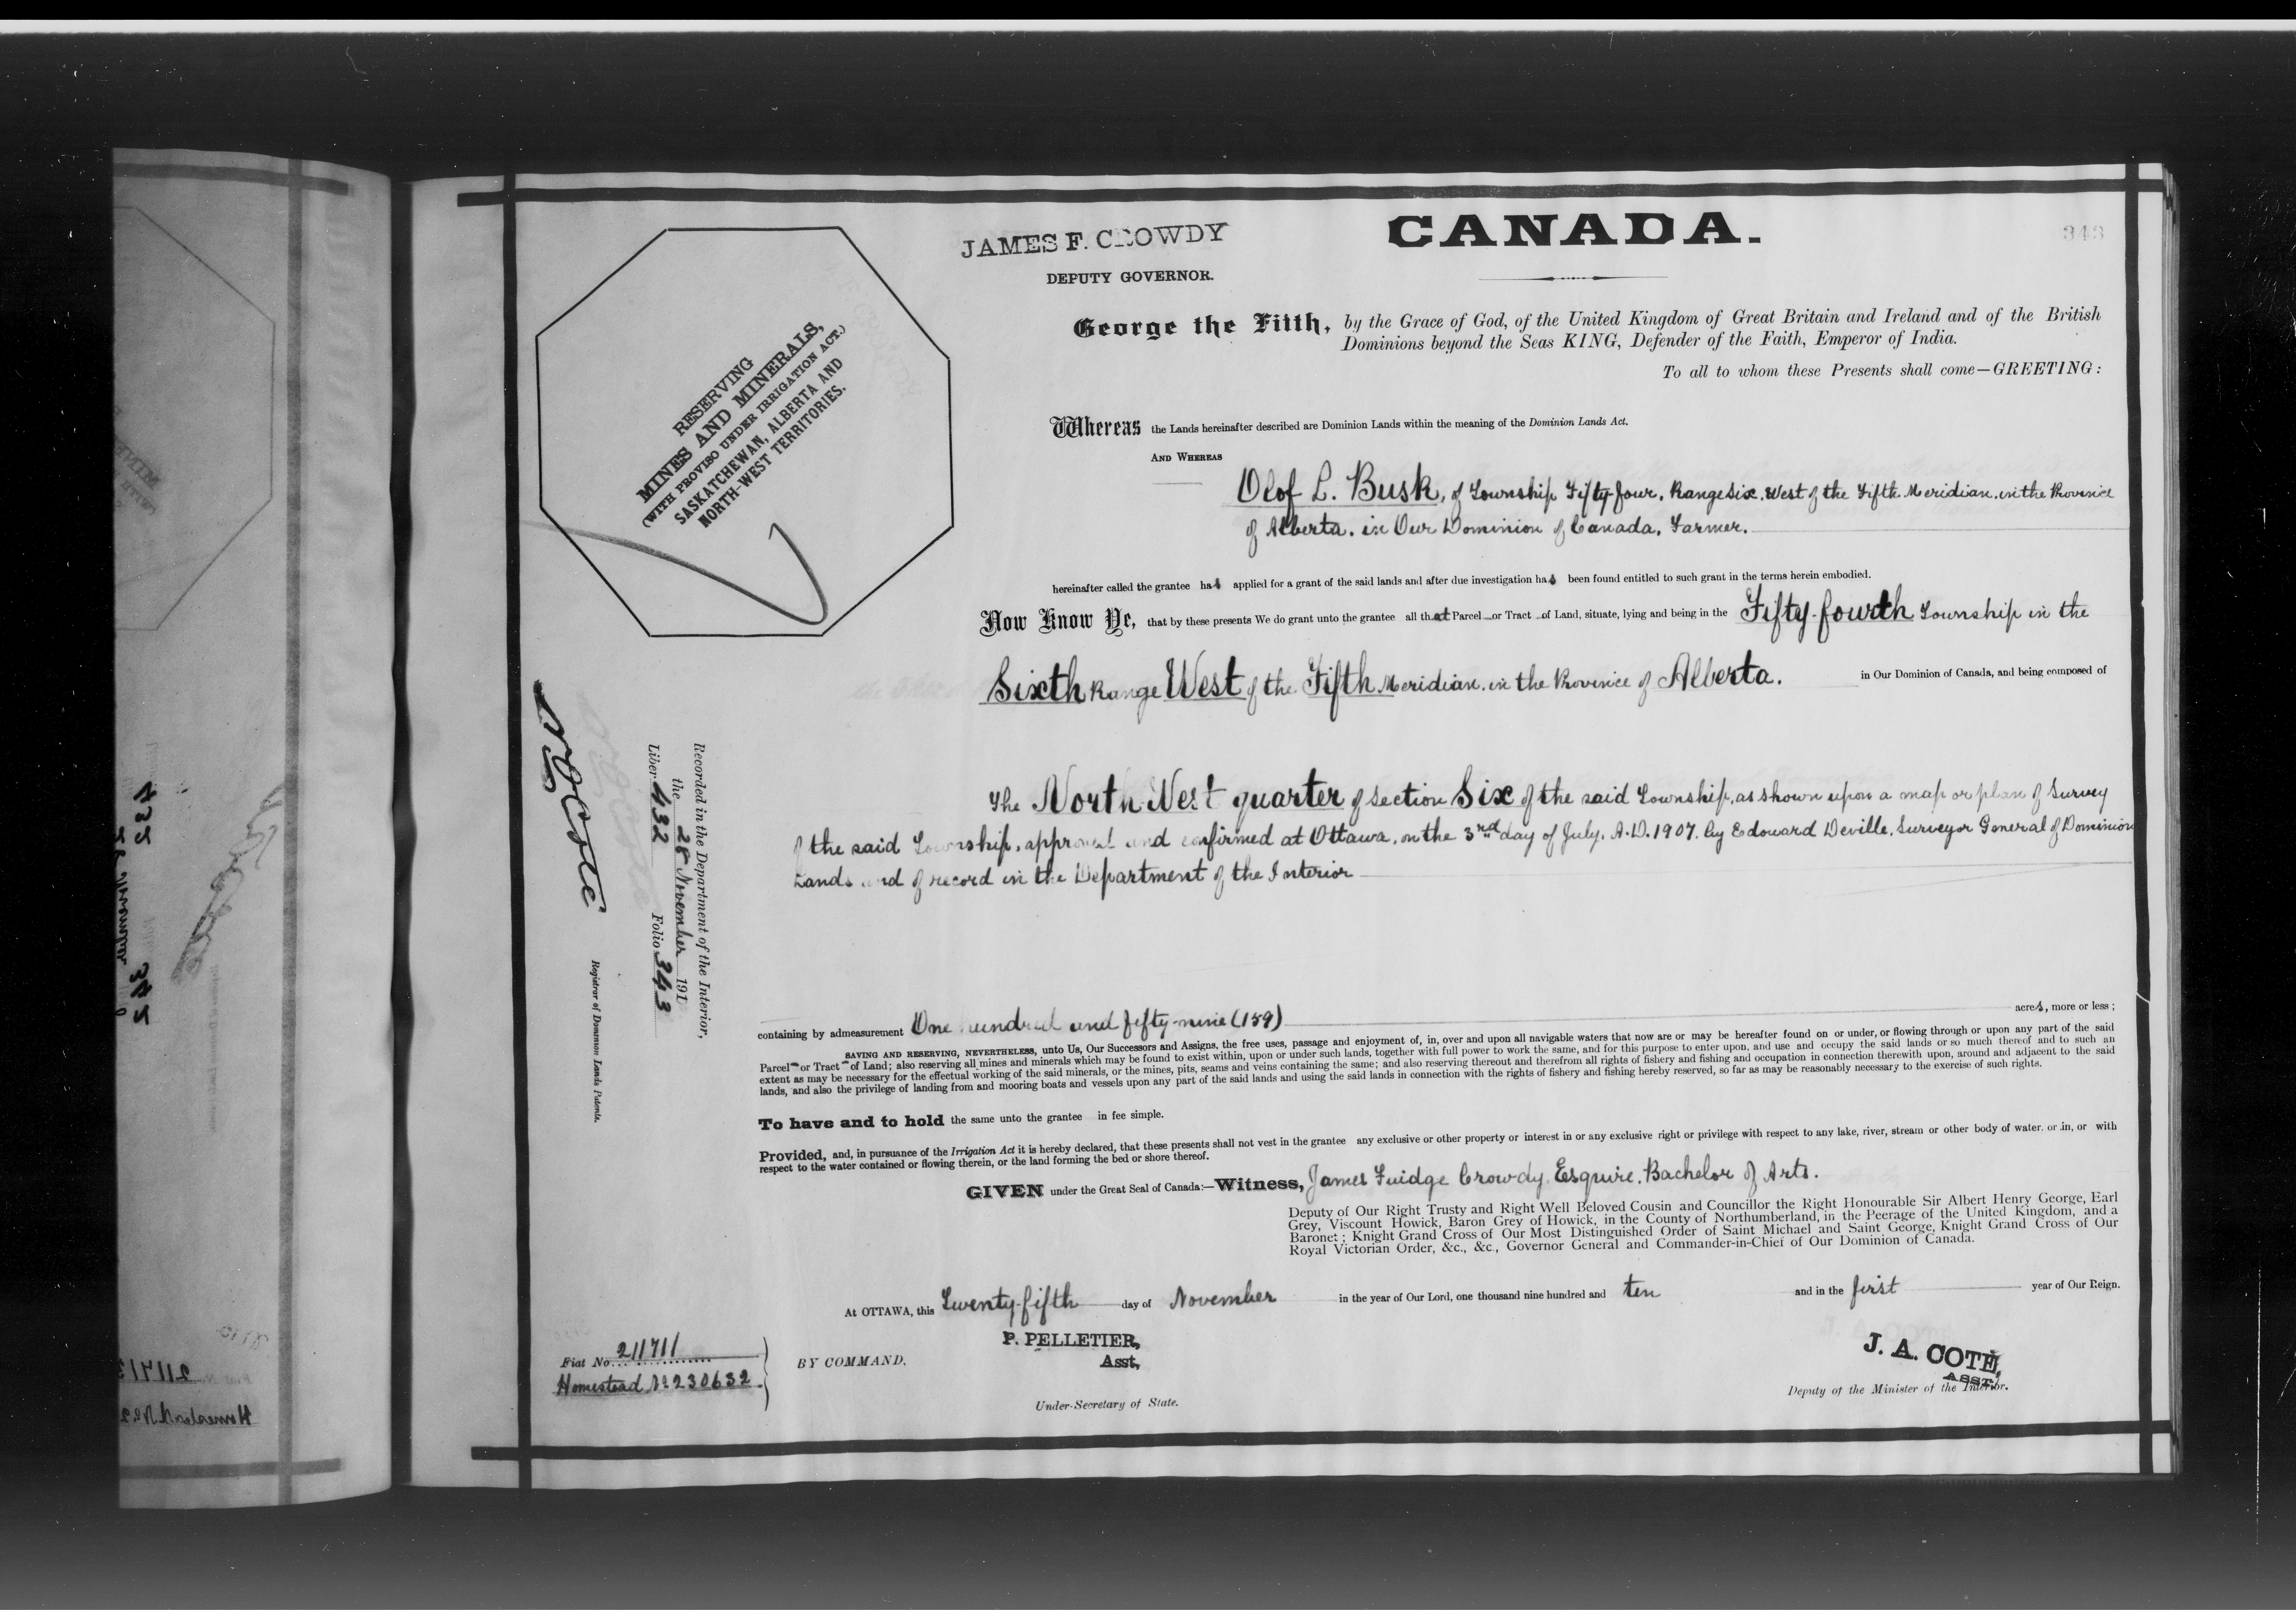 JAMES F. CROWDY
DEPUTY GOVERNOR.
CANADA.
343
George the Fifth, by the Grace of God, of the United Kingdom of Great Britain and Ireland and of the British
Dominions beyond the Seas KING, Defender of the Faith, Emperor of India.
To all to whom these Presents shall come—GREETING:
RESERVING
MINES AND MINERALS,
(WITH PROVISO UNDER IRRIGATION ACT.)
SASKATCHEWAN, ALBERTA AND
NORTH-WEST TERRITORIES.
Whereas the Lands hereinafter described are Dominion Lands within the meaning of the Dominion Lands Act.
AND WHEREAS
Olof L. Busk, of Township Fifty-four, Range Six, West of the Fifth Meridian, in the Province
of Alberta, in Our Dominion of Canada, Farmer.
hereinafter called the grantee has applied for a grant of the said lands and after due investigation has been found entitled to such grant in the terms herein embodied.
Now Know Ye, that by these presents We do grant unto the grantee all that Parcel or Tract of Land, situate, lying and being in the Fifty-fourth Township in the
Sixth Range West of the Fifth Meridian, in the Province of Alberta. in Our Dominion of Canada, and being composed of
The North West quarter of Section Six of the said Township, as shown upon a map or plan of Survey
of the said Township, approved and confirmed at Ottawa, on the 3rd day of July, A.D. 1907, by Edouard Deville, Surveyor General of Dominion
Lands and of record in the Department of the Interior
Recorded in the Department of the Interior,
the 28 November 191
Liber 432 Folio 343
N O Cote
Registrar of Dominion Lands Patents.
containing by admeasurement One hundred and fifty-nine (159) acres, more or less;
SAVING AND RESERVING, NEVERTHELESS, unto Us, Our Successors and Assigns, the free uses, passage and enjoyment of, in, over and upon all navigable waters that now are or may be hereafter found on or under, or flowing through or upon any part of the said
Parcel or Tract of Land; also reserving all mines and minerals which may be found to exist within, upon or under such lands, together with full power to work the same, and for this purpose to enter upon, and use and occupy the said lands or so much thereof and to such an
extent as may be necessary for the effectual working of the said minerals, or the mines, pits, seams and veins containing the same; and also reserving thereout and therefrom all rights of fishery and fishing and occupation in connection therewith upon, around and adjacent to the said
lands, and also the privilege of landing from and mooring boats and vessels upon any part of the said lands and using the said lands in connection with the rights of fishery and fishing hereby reserved, so far as may be reasonably necessary to the exercise of such rights.
To have and to hold the same unto the grantee in fee simple.
Provided, and, in pursuance of the Irrigation Act it is hereby declared, that these presents shall not vest in the grantee any exclusive or other property or interest in or any exclusive right or privilege with respect to any lake, river, stream or other body of water, or in, or with
respect to the water contained or flowing therein, or the land forming the bed or shore thereof.
GIVEN under the Great Seal of Canada:—Witness, James Fuidge Crowdy, Esquire, Bachelor of Arts.
Deputy of Our Right Trusty and Right Well Beloved Cousin and Councillor the Right Honourable Sir Albert Henry George, Earl
Grey, Viscount Howick, Baron Grey of Howick, in the County of Northumberland, in the Peerage of the United Kingdom, and a
Baronet; Knight Grand Cross of Our Most Distinguished Order of Saint Michael and Saint George, Knight Grand Cross of Our
Royal Victorian Order, &c., &c., Governor General and Commander-in-Chief of Our Dominion of Canada.
At OTTAWA, this Twenty-fifth day of November in the year of Our Lord, one thousand nine hundred and ten and in the first year of Our Reign.
Fiat No. 211711
Homestead No 230632
BY COMMAND.
P. PELLETIER,
Asst,
Under-Secretary of State.
J. A. COTÉ,
ASST.
Deputy of the Minister of the Interior.